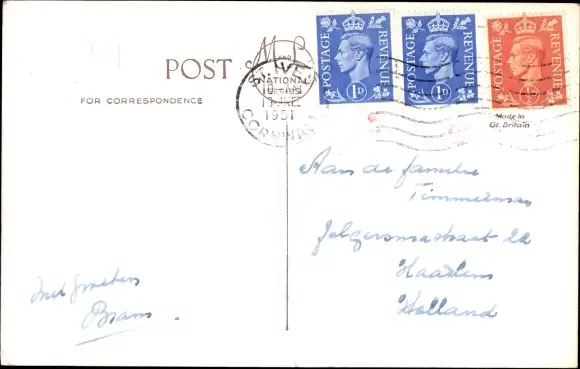 POST
FOR CORRESPONDENCE
M AND L
NATIONAL
SERIES
ST. IVES
11 JNE
1951
CORNWALL
POSTAGE REVENUE
1D
POSTAGE REVENUE
1D
POSTAGE REVENUE
Made in
Gt. Britain
Aan de familie
Timmerman
Jelgersmastraat 22
Haarlem
Holland
Met groeten
Bram.